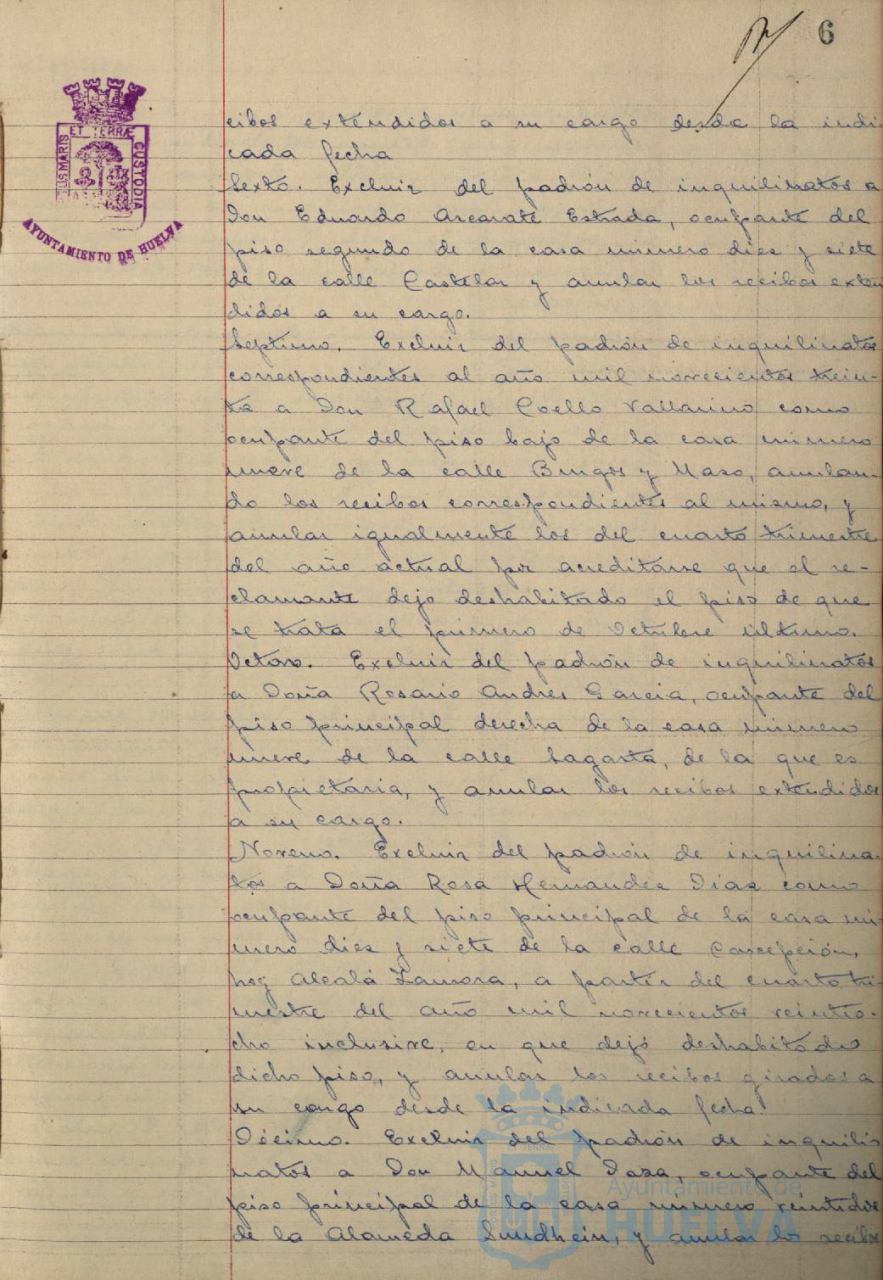 6
PORTUS MARIS ET TERRÆ CUSTODIA
AYUNTAMIENTO DE HUELVA
cibos extendidos a su cargo desde la indi
cada fecha
Sexto. Excluir del padrón de inquilinatos a
Don Eduardo Azcarate Estrada, ocupante del
piso segundo de la casa número diez y siete
de la calle Castelar y anular los recibos exten
didos a su cargo.
Septimo. Excluir del padrón de inquilinatos
correspondientes al año mil novecientos trein-
ta a Don Rafael Coello Vallarino como
ocupante del piso bajo de la casa número
nueve de la calle Burgos y Maso, anulan-
do los recibos correspondientes al mismo, y
anular igualmente los del cuarto trimestre
del año actual por acreditarse que el re-
clamante dejo deshabitado el piso de que
se trata el primero de Octubre último.
Octavo. Excluir del padrón de inquilinatos
a Doña Rosario Andres Garcia, ocupante del
piso principal derecha de la casa número
nueve de la calle Sagasta, de la que es
propietaria, y anular los recibos extendidos
a su cargo.
Noveno. Excluir del padrón de inquilina-
tos a Doña Rosa Hernandez Diaz como
ocupante del piso principal de la casa nú-
mero diez y siete de la calle Concepción,
hoy Alcalá Zamora, a partir del cuarto tri-
mestre del año mil novecientos veintio-
cho inclusive, en que dejó deshabitado
dicho piso, y anular los recibos girados a
su cargo desde la indicada fecha.
Décimo. Excluir del padrón de inquili-
natos a Don Manuel Daza, ocupante del
piso principal de la casa número veintidos
de la Alameda Sundhein, y anular los recibos
Ayuntamiento de
HUELVA